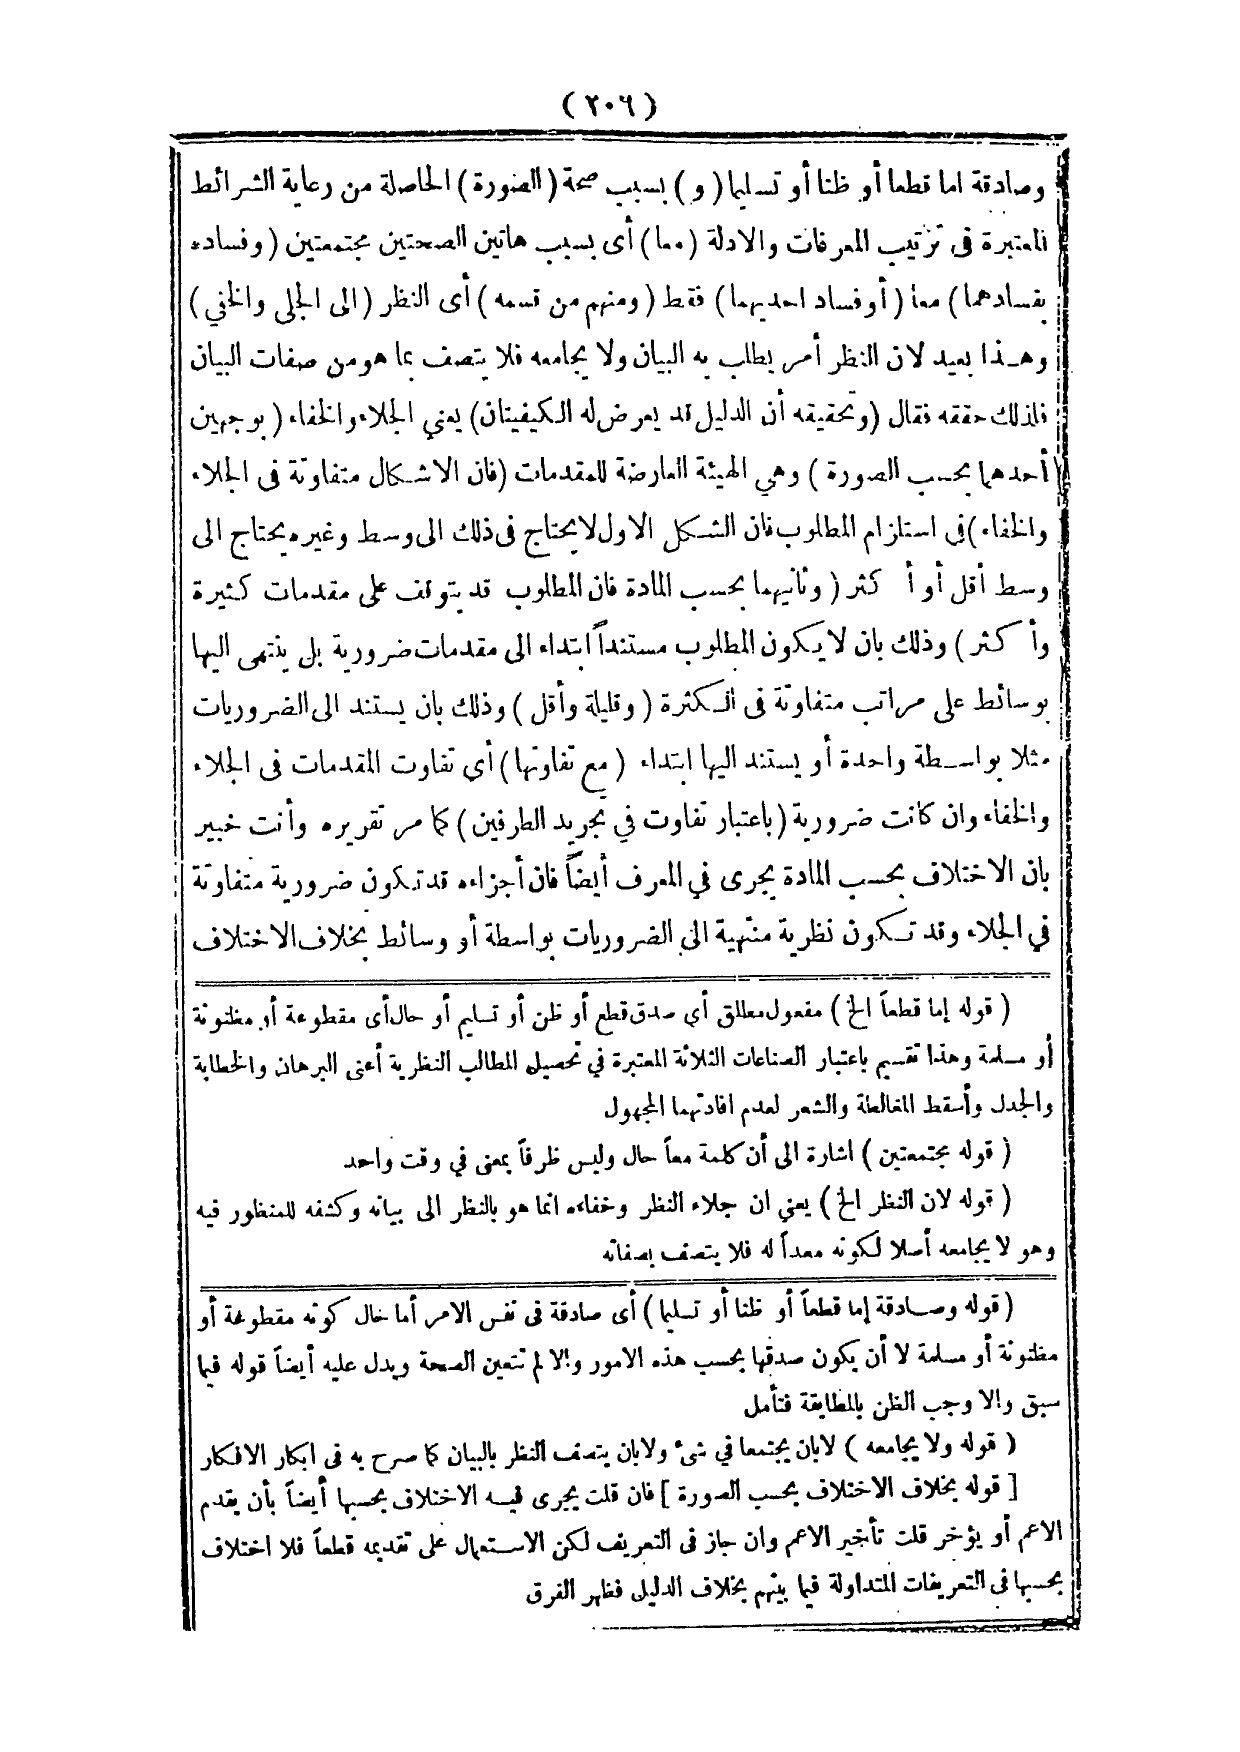 ( ٢٠٦ )
وصادقة اما قطعا أو ظنا أو تسليما ( و ) بسبب صحة ( الصورة ) الحاصلة من رعاية الشرائط
المعتبرة فى ترتيب المعرفات والادلة ( معا ) أى بسبب هاتين الصحتين مجتمعتين ( وفساده
بفسادهما ) معا ( أو فساد احديهما ) فقط ( ومنهم من قسمه ) أى النظر ( الى الجلى والخفي )
وهـذا بعيد لان النظر أمر يطلب به البيان ولا يجامعه فلا يتصف بما هو من صفات البيان
فلذلك حققه فقال ( وتحقيقه أن الدليل قد يعرض له الكيفيتان ) يعني الجلاء والخفاء ( بوجهين
أحدهما بحسب الصورة ) وهي الهيئة العارضة للمقدمات ( فان الاشكال متفاوتة فى الجلاء
والخفاء ) فى استلزام المطلوب فان الشكل الاول لا يحتاج فى ذلك الى وسط وغيره يحتاج الى
وسط أقل أو أ كثر ( وثانيهما بحسب المادة فان المطلوب قد يتوقف على مقدمات كثيرة
وأ كثر ) وذلك بان لا يكون المطلوب مستنداً ابتداء الى مقدمات ضرورية بل ينتهى اليها
بوسائط على مراتب متفاوتة فى الكثرة ( وقليلة وأقل ) وذلك بان يستند الى الضروريات
مثلا بواسـطة واحدة أو يستند اليها ابتداء ( مع تفاوتها ) أي تفاوت المقدمات فى الجلاء
والخفاء وان كانت ضرورية ( باعتبار تفاوت في تجريد الطرفين ) كما مر تقريره وأنت خبير
بان الاختلاف بحسب المادة يجرى في المعرف أيضاً فان أجزاءه قد تكون ضرورية متفاوتة
في الجلاء وقد تكون نظرية منتهية الى الضروريات بواسطة أو وسائط بخلاف الاختلاف
( قوله إما قطعاً الخ ) مفعول مطلق أي صدق قطع أو ظن أو تسليم أو حال أى مقطوعة أو مظنونة
أو مسلمة وهذا تقسيم باعتبار الصناعات الثلاثة المعتبرة في تحصيل المطالب النظرية أعنى البرهان والخطابة
والجدل وأسقط المغالطة والشعر لعدم افادتهما المجهول
( قوله مجتمعتين ) اشارة الى أن كلمة معاً حال وليس ظرفاً بمعنى في وقت واحد
( قوله لان النظر الخ ) يعني ان جلاء النظر وخفاءه انما هو بالنظر الى بيانه وكشفه للمنظور فيه
وهو لا يجامعه أصلا لكونه معداً له فلا يتصف بصفاته
( قوله وصـادقة إما قطعاً أو ظنا أو تسليما ) أى صادقة فى نفس الامر أما حال كونه مقطوعة أو
مظنونة أو مسلمة لا أن يكون صدقها بحسب هذه الامور والا لم تتعين الصحة ويدل عليه أيضاً قوله فيما
سبق والا وجب الظن بالمطابقة فتأمل
( قوله ولا يجامعه ) لا بان يجتمعا في شئ ولا بان يتصف النظر بالبيان كما صرح به فى ابكار الافكار
[ قوله بخلاف الاختلاف بحسب الصورة ] فان قلت يجرى فيـه الاختلاف بحسبها أيضاً بأن يقدم
الاعم أو يؤخر قلت تأخير الاعم وان جاز فى التعريف لكن الاستعمال على تقديمه قطعاً فلا اختلاف
بحسبها فى التعريفات المتداولة فيما بينهم بخلاف الدليل فظهر الفرق